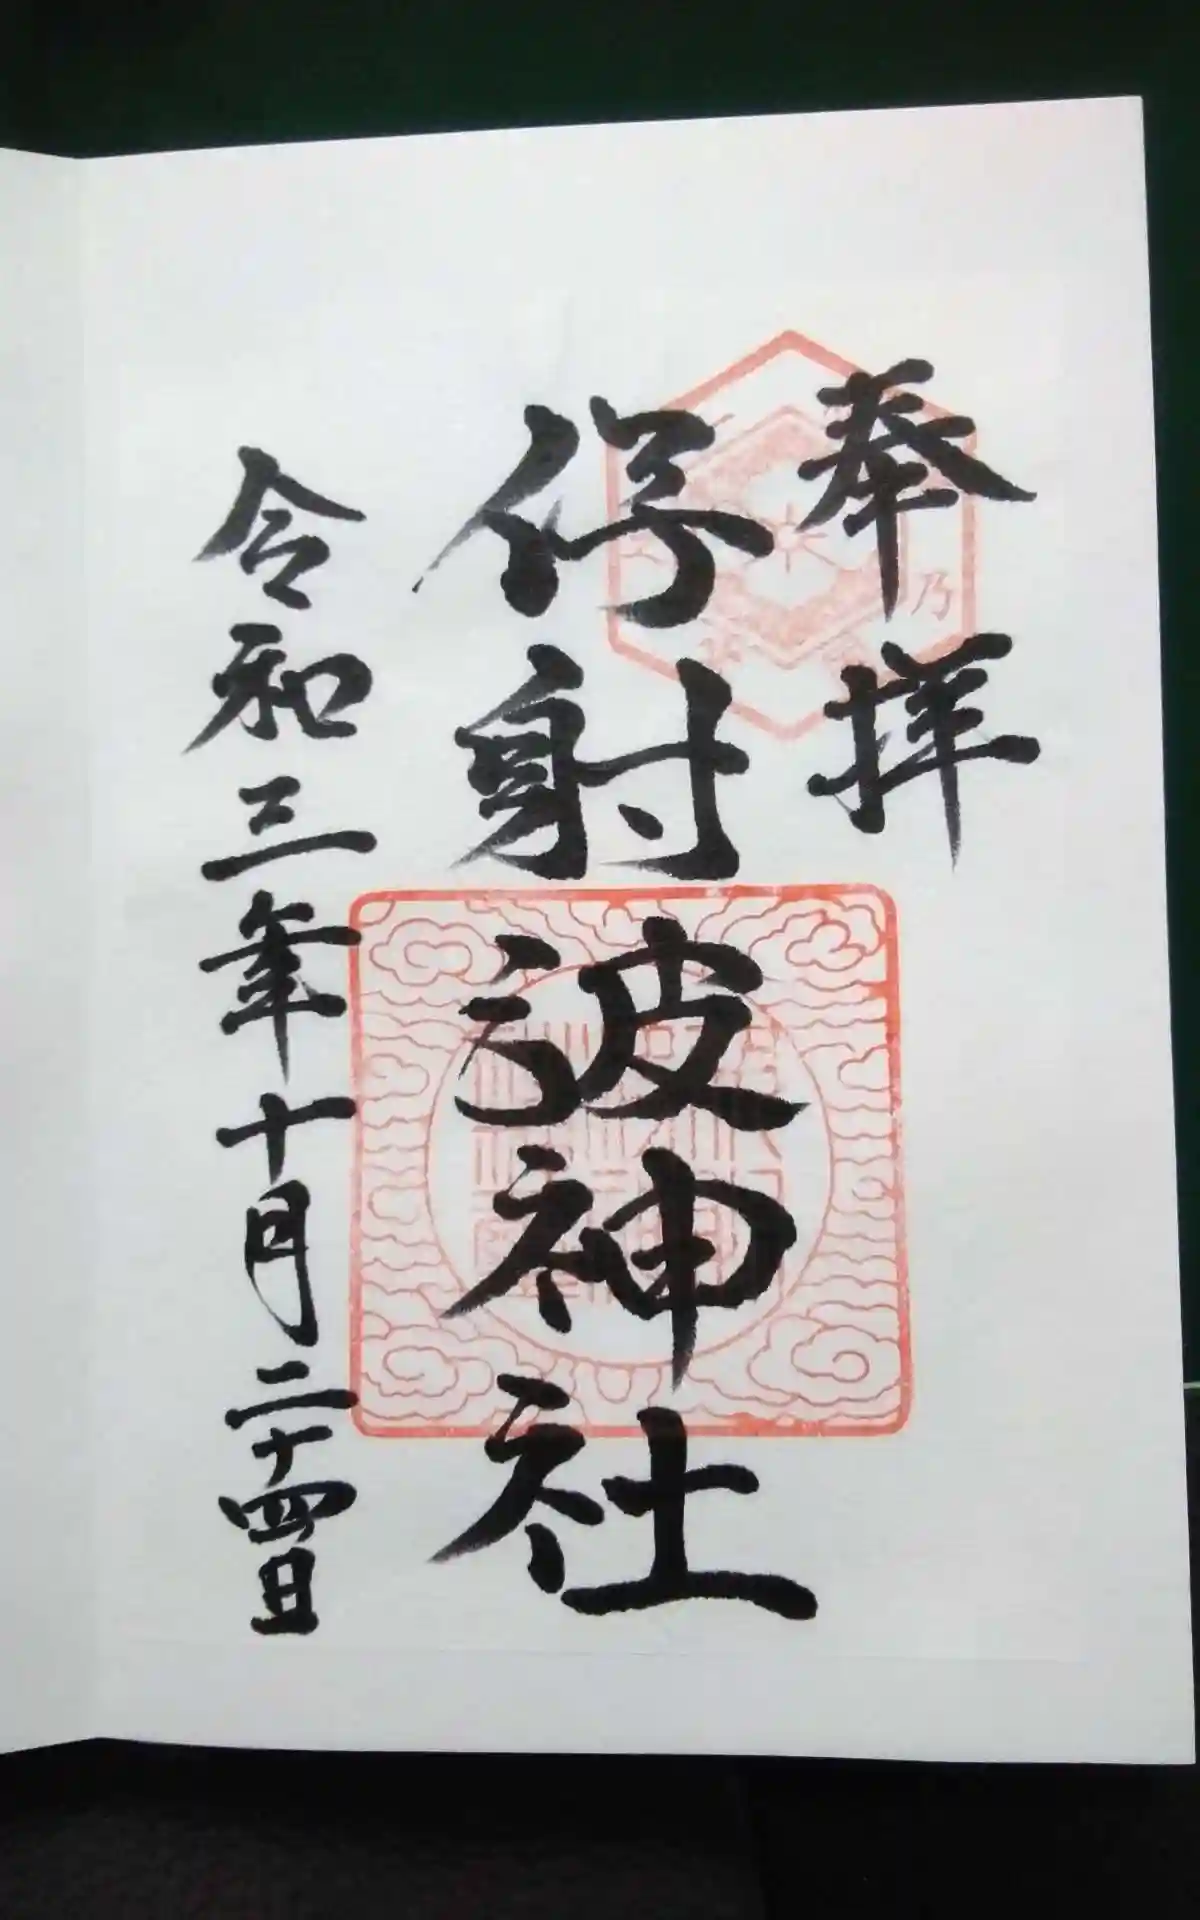 奉拝
伊射波神社
令和三年十月二十四日
乃